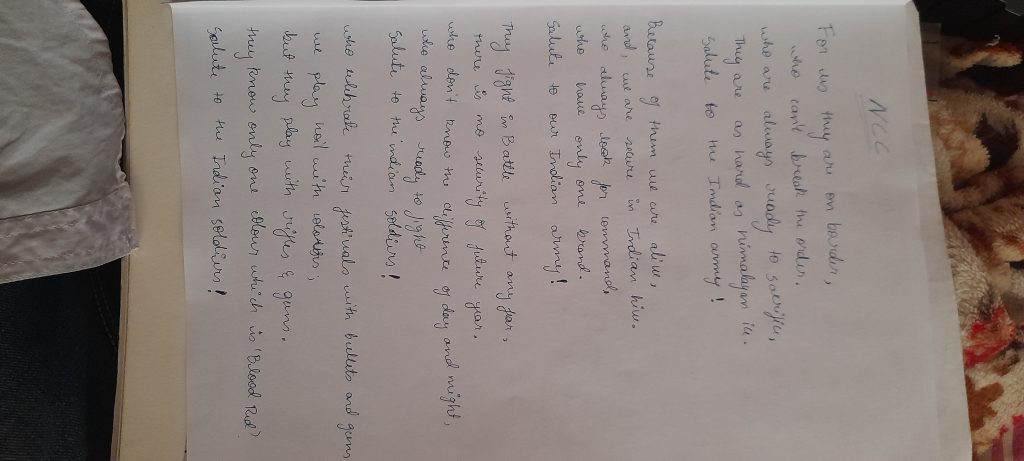 NCC
For us they are on border,
who can't break the order.
who are always ready to sacrifice,
They are as hard as himalayan ice.
Salute to the Indian army!
Because of them we are alive,
and, we are secure in Indian hive.
who always look for command,
who have only one brand.
Salute to our Indian army!
They fight in Battle without any fear,
there is no security of future year.
who don't know the difference of day and night,
who always ready to fight
Salute to the indian soldiers!
who celebrate their festivals with bullets and guns
we play holi with colors,
but they play with rifles & guns.
they know only one colour which is 'Blood Red'.
Salute to the Indian soldiers!